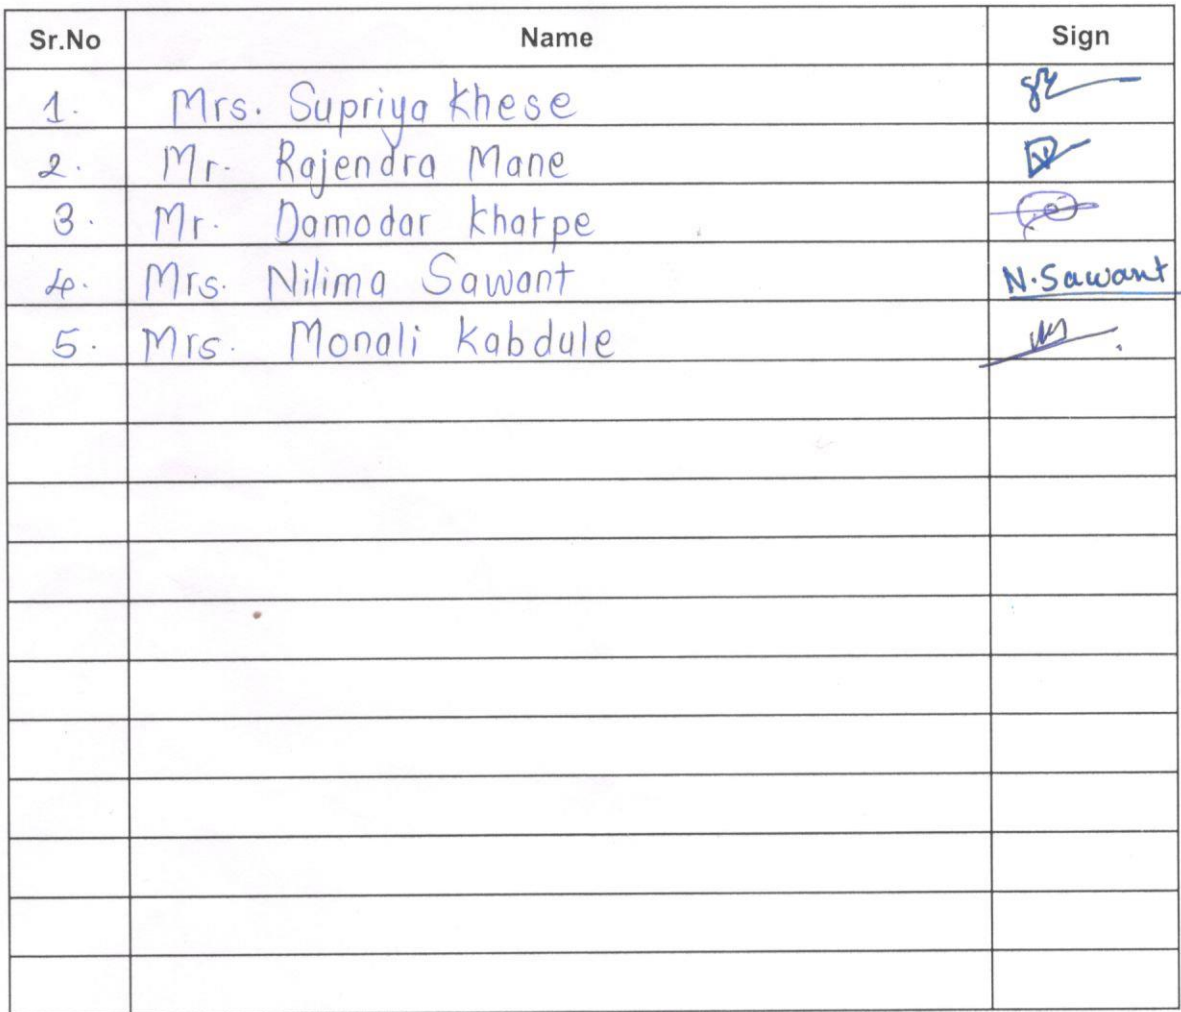 Sr.No Name Sign
1. Mrs. Supriya Khese
2. Mr. Rajendra Mane
3. Mr. Damodar Kharpe
4. Mrs. Nilima Sawant N.Sawant
5. Mrs. Monali Kabdule